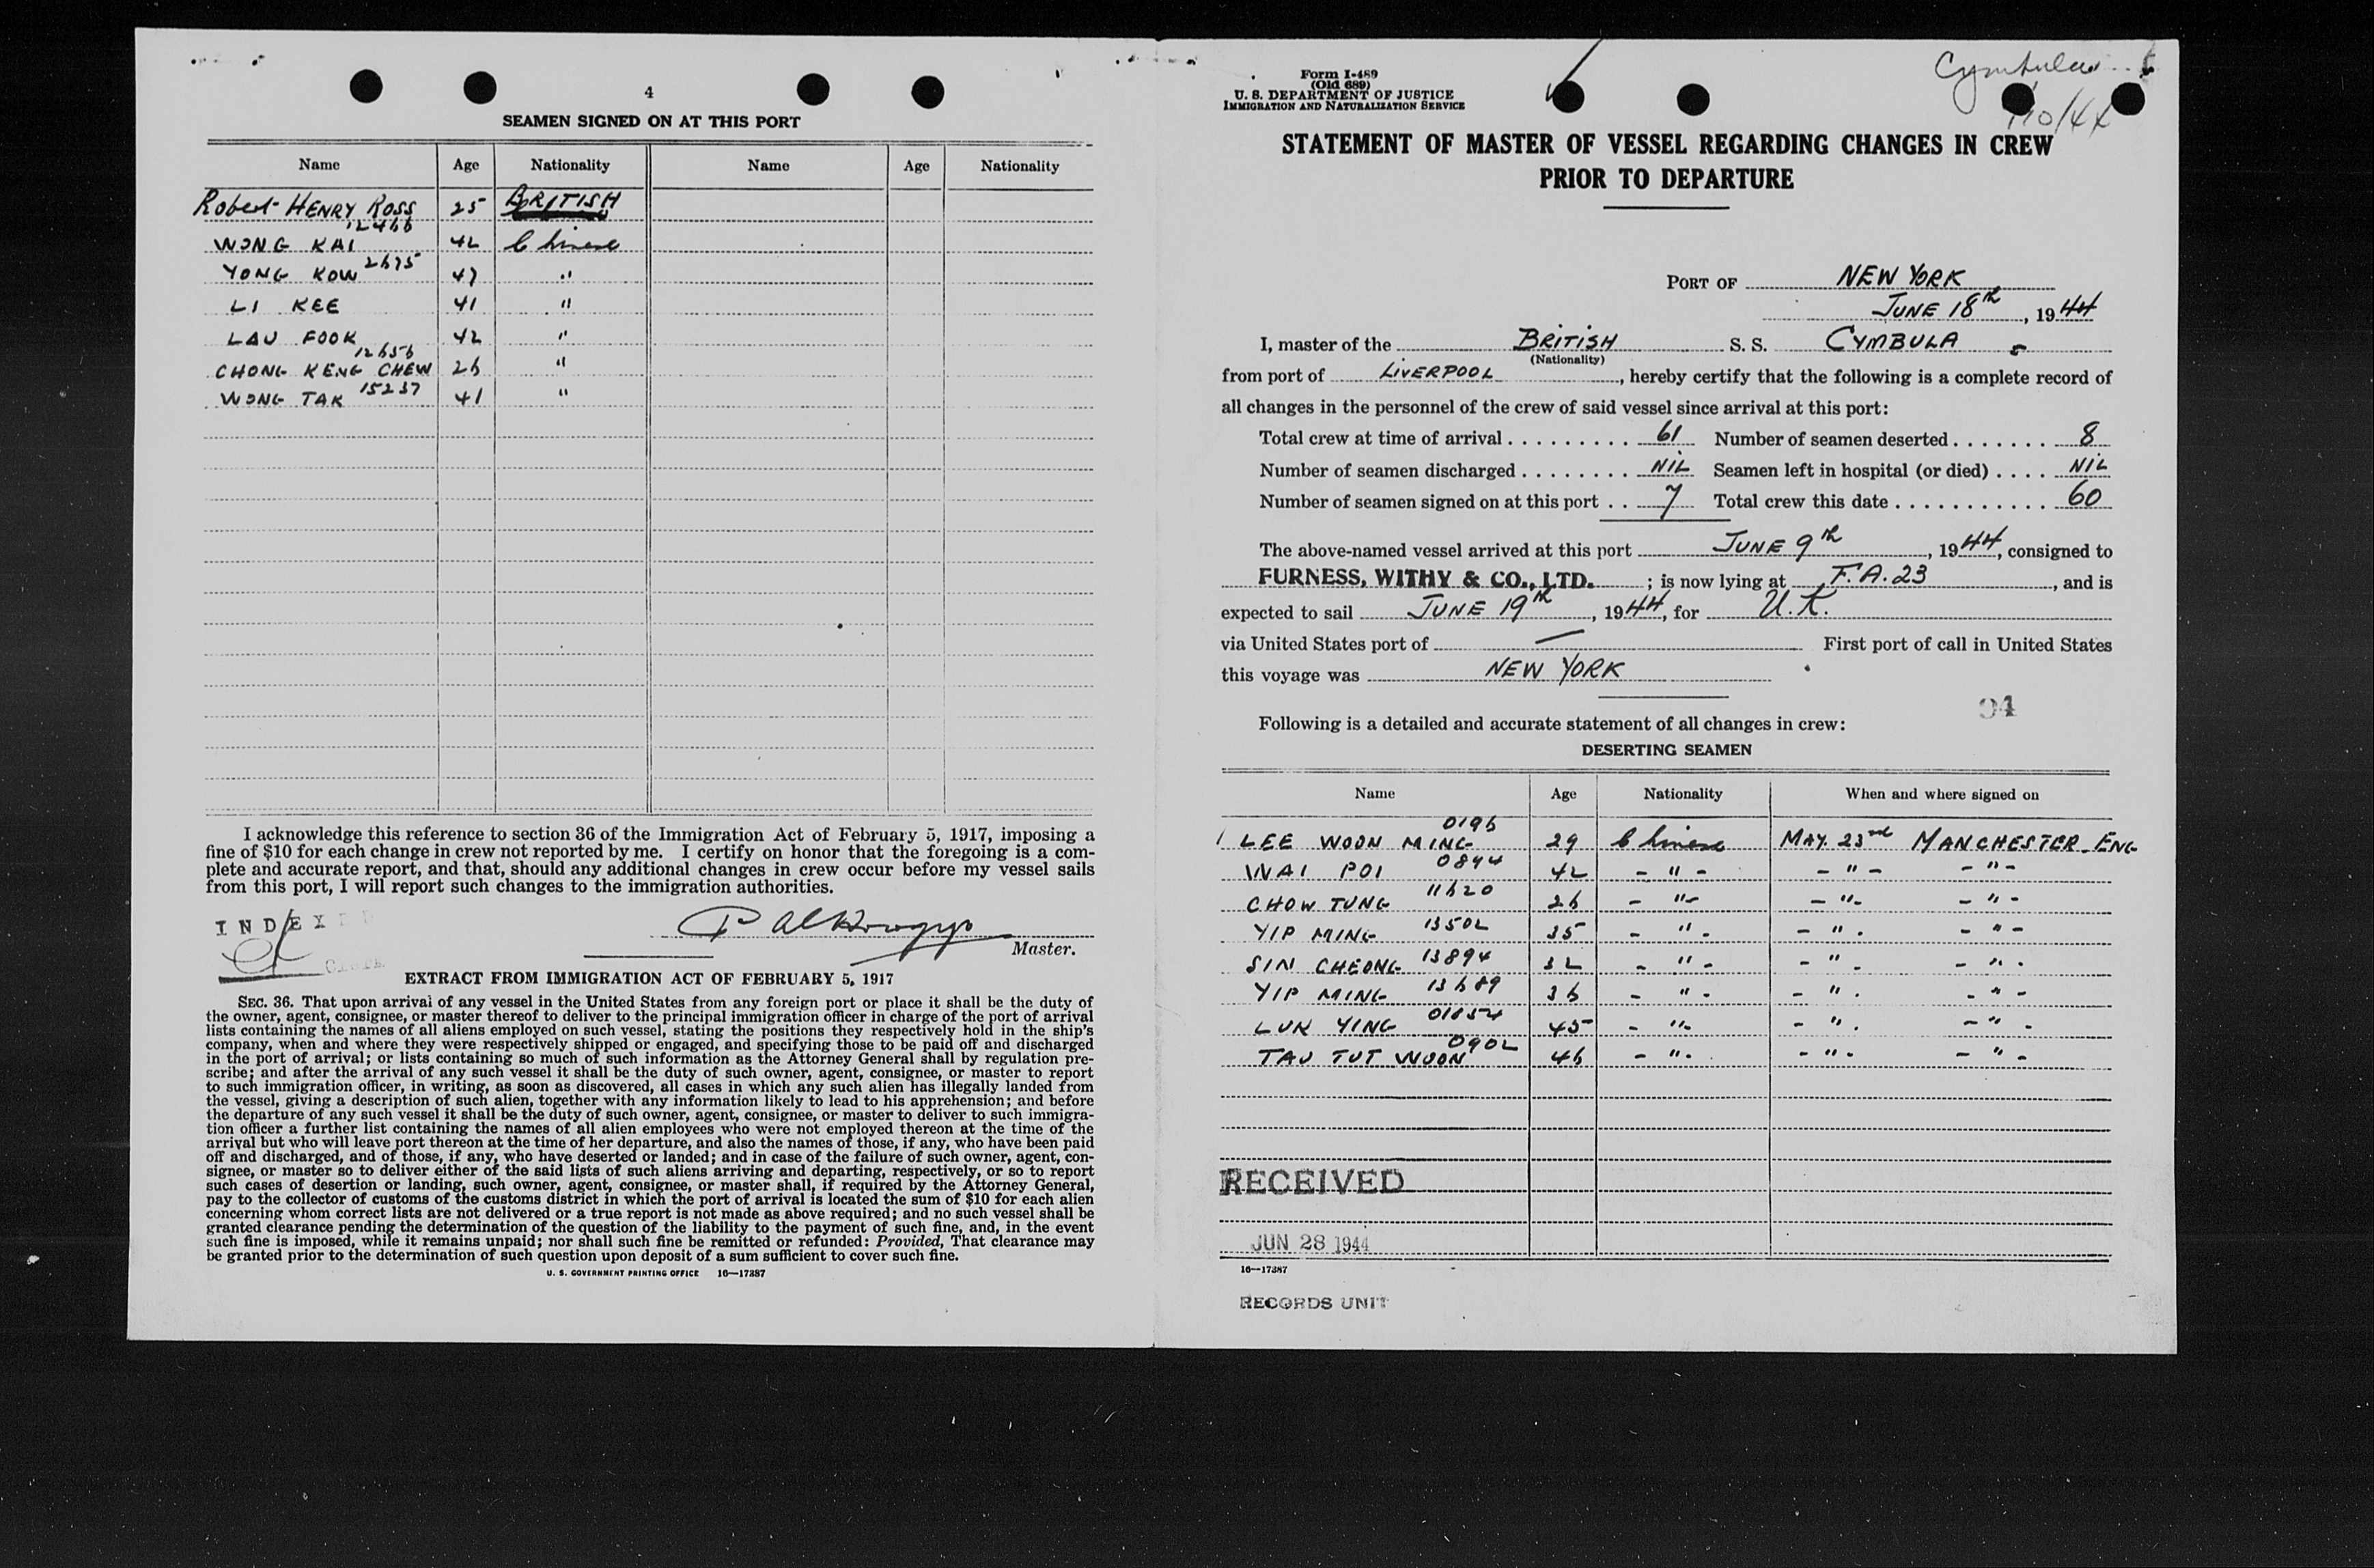 4
SEAMEN SIGNED ON AT THIS PORT
Name Age Nationality Name Age Nationality
Robert HENRY ROSS 25 BRITISH
WONG KAI 12466 42 Chinese
YONG KOW 2675 47 "
LI KEE 41 "
LAU FOOK 42 "
CHONG KENG CHEW 12656 26 "
WONG TAK 15237 41 "
I acknowledge this reference to section 36 of the Immigration Act of February 5, 1917, imposing a
fine of $10 for each change in crew not reported by me. I certify on honor that the foregoing is a com-
plete and accurate report, and that, should any additional changes in crew occur before my vessel sails
from this port, I will report such changes to the immigration authorities.
INDEXED
Master.
EXTRACT FROM IMMIGRATION ACT OF FEBRUARY 5, 1917
SEC. 36. That upon arrival of any vessel in the United States from any foreign port or place it shall be the duty of
the owner, agent, consignee, or master thereof to deliver to the principal immigration officer in charge of the port of arrival
lists containing the names of all aliens employed on such vessel, stating the positions they respectively hold in the ship's
company, when and where they were respectively shipped or engaged, and specifying those to be paid off and discharged
in the port of arrival; or lists containing so much of such information as the Attorney General shall by regulation pre-
scribe; and after the arrival of any such vessel it shall be the duty of such owner, agent, consignee, or master to report
to such immigration officer, in writing, as soon as discovered, all cases in which any such alien has illegally landed from
the vessel, giving a description of such alien, together with any information likely to lead to his apprehension; and before
the departure of any such vessel it shall be the duty of such owner, agent, consignee, or master to deliver to such immigra-
tion officer a further list containing the names of all alien employees who were not employed thereon at the time of the
arrival but who will leave port thereon at the time of her departure, and also the names of those, if any, who have been paid
off and discharged, and of those, if any, who have deserted or landed; and in case of the failure of such owner, agent, con-
signee, or master so to deliver either of the said lists of such aliens arriving and departing, respectively, or so to report
such cases of desertion or landing, such owner, agent, consignee, or master shall, if required by the Attorney General,
pay to the collector of customs of the customs district in which the port of arrival is located the sum of $10 for each alien
concerning whom correct lists are not delivered or a true report is not made as above required; and no such vessel shall be
granted clearance pending the determination of the question of the liability to the payment of such fine, and, in the event
such fine is imposed, while it remains unpaid; nor shall such fine be remitted or refunded: Provided, That clearance may
be granted prior to the determination of such question upon deposit of a sum sufficient to cover such fine.
U. S. GOVERNMENT PRINTING OFFICE 16—17387
Form I-489
(Old 689)
U. S. DEPARTMENT OF JUSTICE
IMMIGRATION AND NATURALIZATION SERVICE
STATEMENT OF MASTER OF VESSEL REGARDING CHANGES IN CREW
PRIOR TO DEPARTURE
PORT OF NEW YORK
JUNE 18th, 1944
I, master of the BRITISH S. S. CYMBULA
(Nationality)
from port of LIVERPOOL, hereby certify that the following is a complete record of
all changes in the personnel of the crew of said vessel since arrival at this port:
Total crew at time of arrival . . . . . . . . . . 61 Number of seamen deserted . . . . . . . 8
Number of seamen discharged . . . . . . . . . NIL Seamen left in hospital (or died) . . . . NIL
Number of seamen signed on at this port . . 7 Total crew this date . . . . . . . . . . . . 60
The above-named vessel arrived at this port JUNE 9th, 1944, consigned to
FURNESS, WITHY & CO., LTD. ; is now lying at F.A.23, and is
expected to sail JUNE 19th, 1944, for U.K.
via United States port of — First port of call in United States
this voyage was NEW YORK
94
Following is a detailed and accurate statement of all changes in crew:
DESERTING SEAMEN
Name Age Nationality When and where signed on
1 LEE WOON MING 0196 29 Chinese MAY. 23nd MANCHESTER-ENG
WAI POI 0894 42 - " - - " - - " -
CHOW TUNG 11620 26 - " - - " - - " -
YIP MING 13502 35 - " - - " - - " -
SIN CHEONG 13894 32 - " - - " - - " -
YIP MING 13689 36 - " - - " - - " -
LUK YING 45 - " - - " - - " -
TAU TUT WOON 0902 46 - " - - " - - " -
RECEIVED
JUN 28 1944
16—17387
RECORDS UNIT